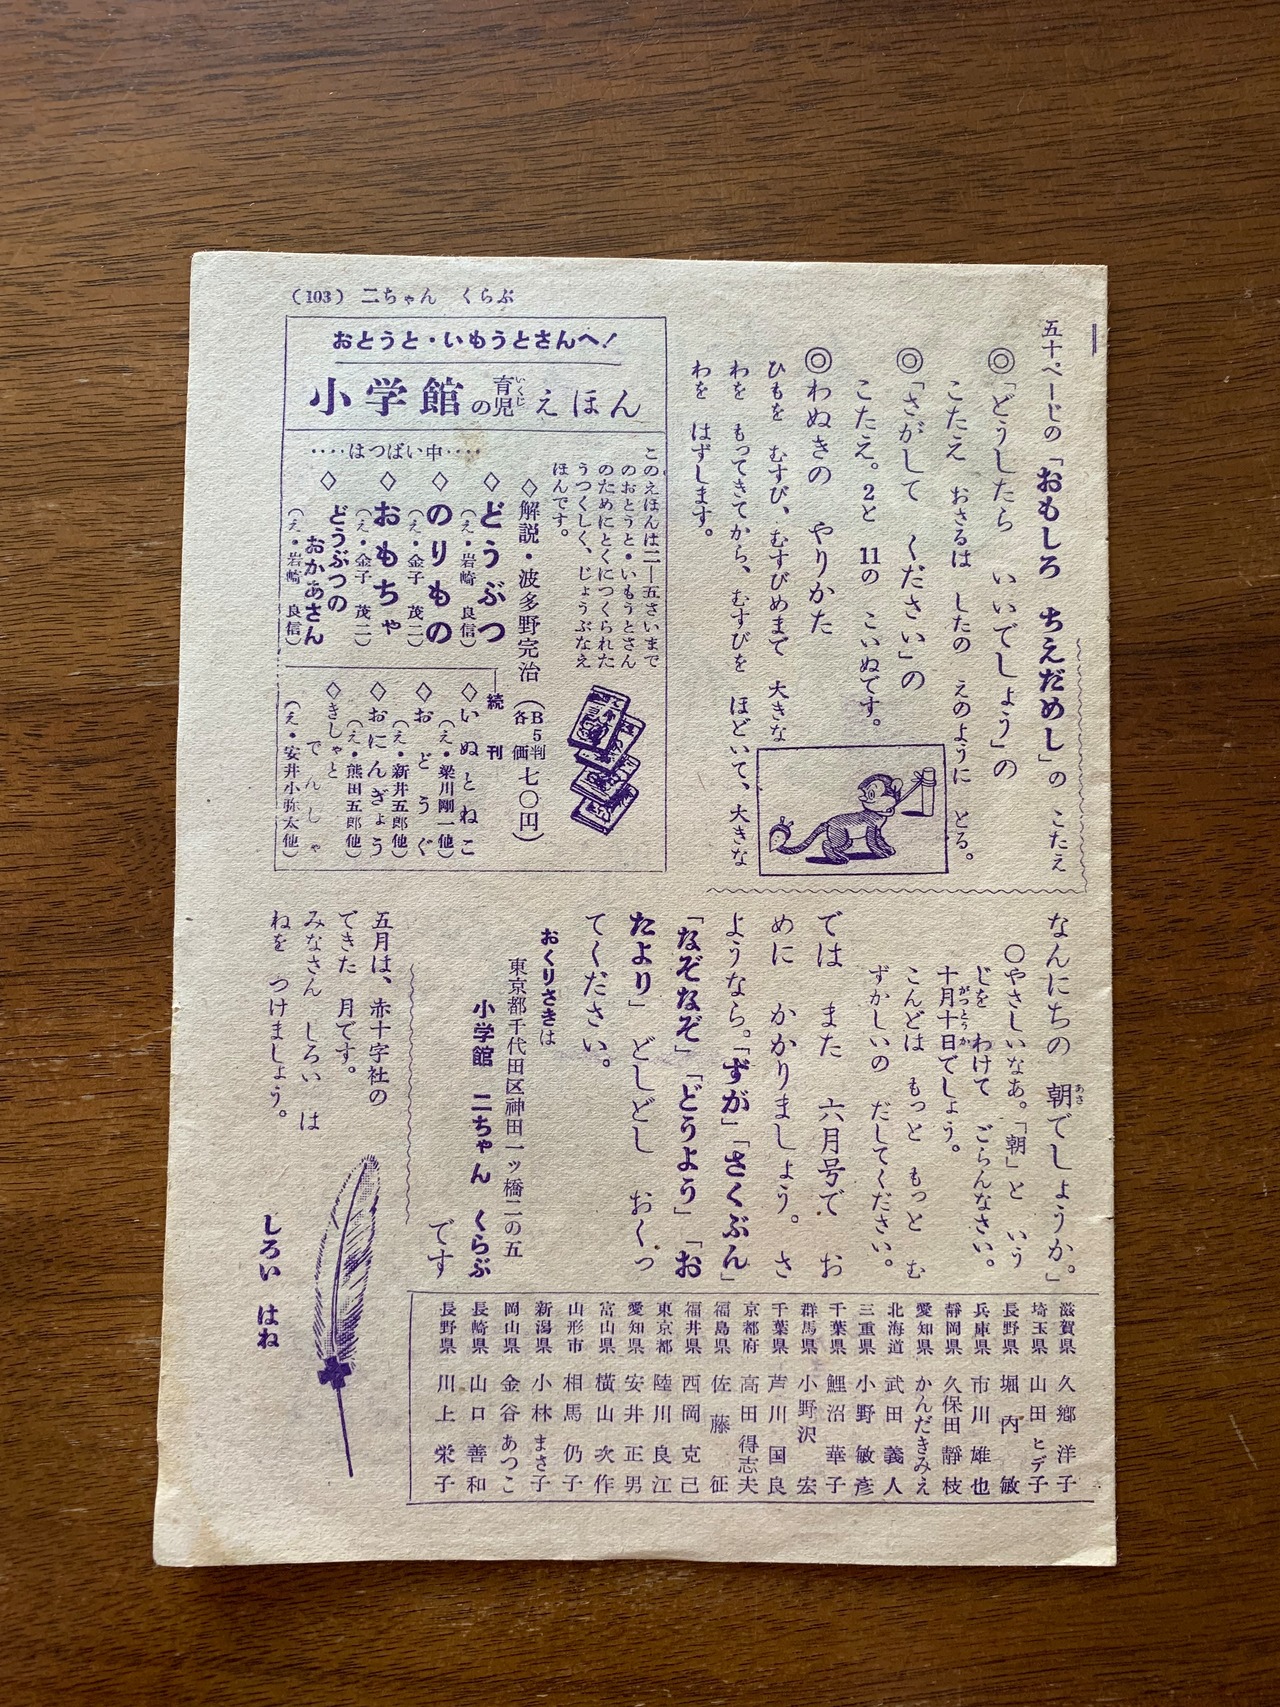 (103) 二ちゃん くらぶ
五十ページの「おもしろ ちえだめし」の こたえ
◎「どうしたら いいでしょう」の
こたえ おさるは したの えのように とる。
◎「さがして ください」の
こたえ。2と 11の こいぬです。
◎わぬきの やりかた
ひもを むすび、むすびめまで 大きな
わを もってきてから、むすびを ほどいて、大きな
わを はずします。
おとうと・いもうとさんへ!
小学館の育児えほん
いくじ
このえほんは二―五さいまで
のおとうと・いもうとさん
のためにとくにつくられた
うつくしく、じょうぶなえ
ほんです。
◇解説・波多野完治(B5判各価七〇円)
‥‥はつばい中‥‥
◇どうぶつ
(え・岩崎 良信)
◇のりもの
(え・金子 茂二)
◇おもちゃ
(え・金子 茂二)
◇どうぶつの
おかあさん
(え・岩崎 良信)
続刊
◇いぬとねこ
(え・梁川剛一他)
◇おどうぐ
(え・新井五郎他)
◇おにんぎょう
(え・熊田五郎他)
◇きしゃと
でんしゃ
(え・安井小弥太他)
なんにちの 朝でしょうか。」
あさ
○やさしいなあ。「朝」と いう
じを わけて ごらんなさい。
十月十日でしょう。
がつとうか
こんどは もっと もっと む
ずかしいの だしてください。
では また 六月号で お
めに かかりましょう。さ
ようなら。「ずが」「さくぶん」
「なぞなぞ」「どうよう」「お
たより」どしどし おくっ
てください。
おくりさきは
東京都千代田区神田一ッ橋二の五
小学館 二ちゃん くらぶ
です
五月は、赤十字社の
できた 月です。
みなさん しろい は
ねを つけましょう。
しろい はね
滋賀県 久郷洋子
埼玉県 山田ヒデ子
長野県 堀内敏
兵庫県 市川雄也
静岡県 久保田静枝
愛知県 かんだきみえ
北海道 武田義人
三重県 小野敏彦
千葉県 鯉沼華子
群馬県 小野沢宏
千葉県 芦川国良
京都府 高田得志夫
福島県 佐藤征
福井県 西岡克己
東京都 陸川良江
愛知県 安井正男
富山県 横山次作
山形市 相馬仍子
新潟県 小林まさ子
岡山県 金谷あつこ
長崎県 山口善和
長野県 川上栄子